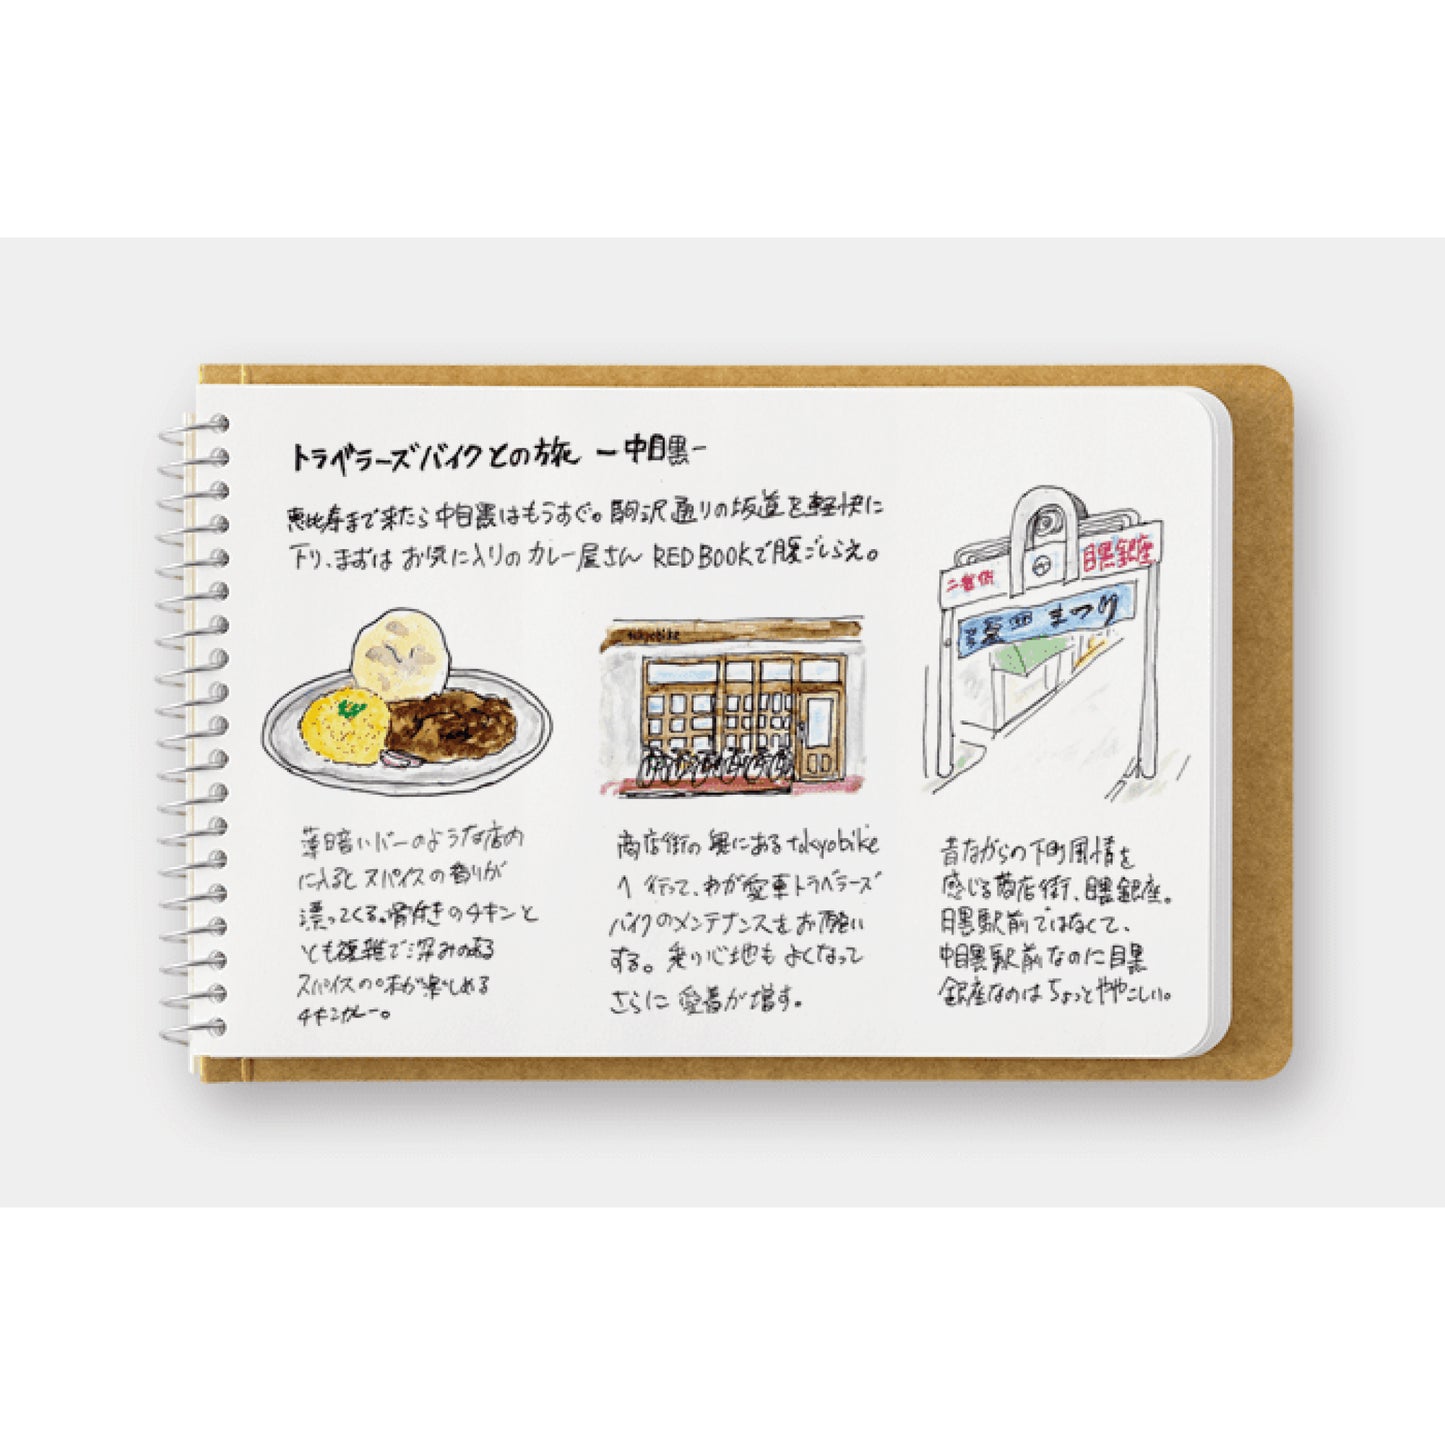 トラベラーズバイクとの旅 ー中目黒ー
恵比寿まで来たら中目黒はもうすぐ。駒沢通りの坂道を軽快に
下り、まずは お気に入りの カレー屋さん RED BOOKで腹ごしらえ。
薄暗いバーのような店内
に入ると スパイスの香りが
漂ってくる。骨付きのチキンと
とも複雑で深みのある
スパイスの味が楽しめる
チキンカレー。
tokyobike
商店街の奥にあるtokyobike
へ行って、わが愛車トラベラーズ
バイクのメンテナンスをお願い
する。乗り心地もよくなって
さらに愛着が増す。
二番街
目黒銀座
まつり
昔ながらの下町風情を
感じる商店街、目黒銀座。
目黒駅前ではなくて、
中目黒駅前なのに目黒
銀座なのはちょっとややこしい。